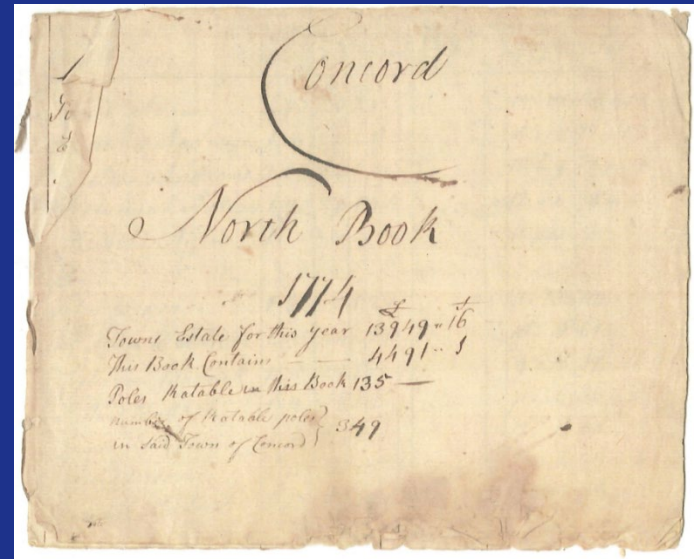 Concord
North Book
1774
£ s
Towns Estate for this year 13949 " 16
This Book Contains — — 4491 " 1
Poles Ratable in this Book 135 —
number of Ratable poles
in said Town of Concord } 349
1
To